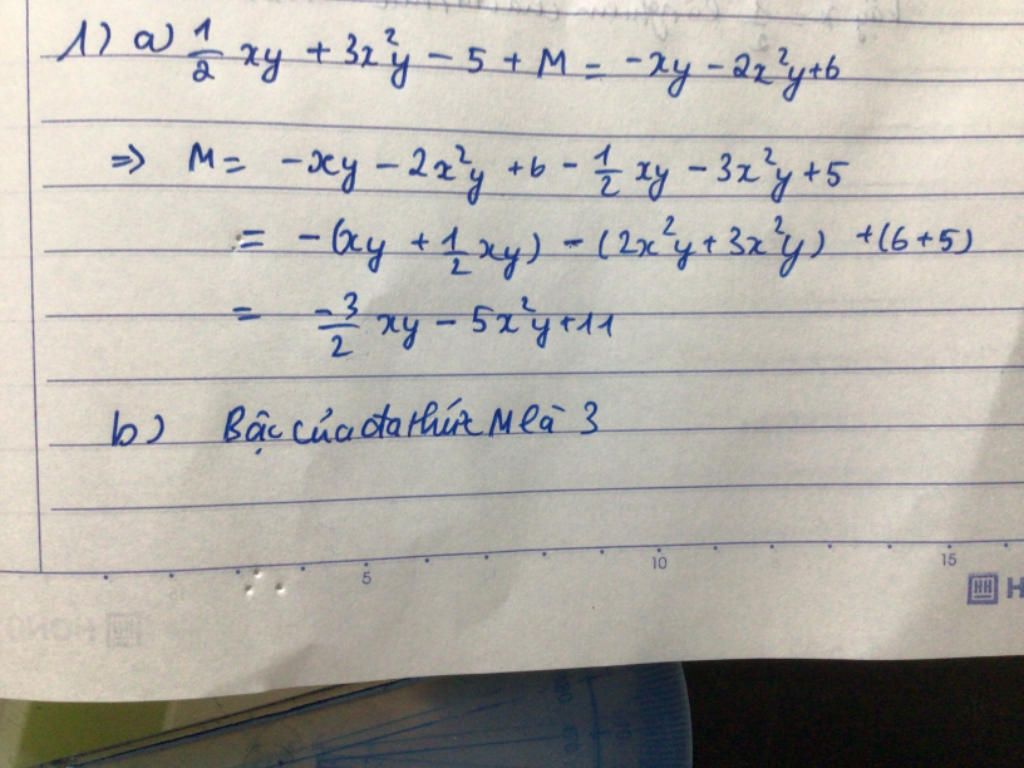 1) a) 1/2 xy + 3x²y - 5 + M = -xy - 2x²y + 6
=> M = -xy - 2x²y + 6 - 1/2 xy - 3x²y + 5
= -(xy + 1/2 xy) - (2x²y + 3x²y) + (6 + 5)
= -3/2 xy - 5x²y + 11
b) Bậc của đa thức M là 3
5 10 15
HH H